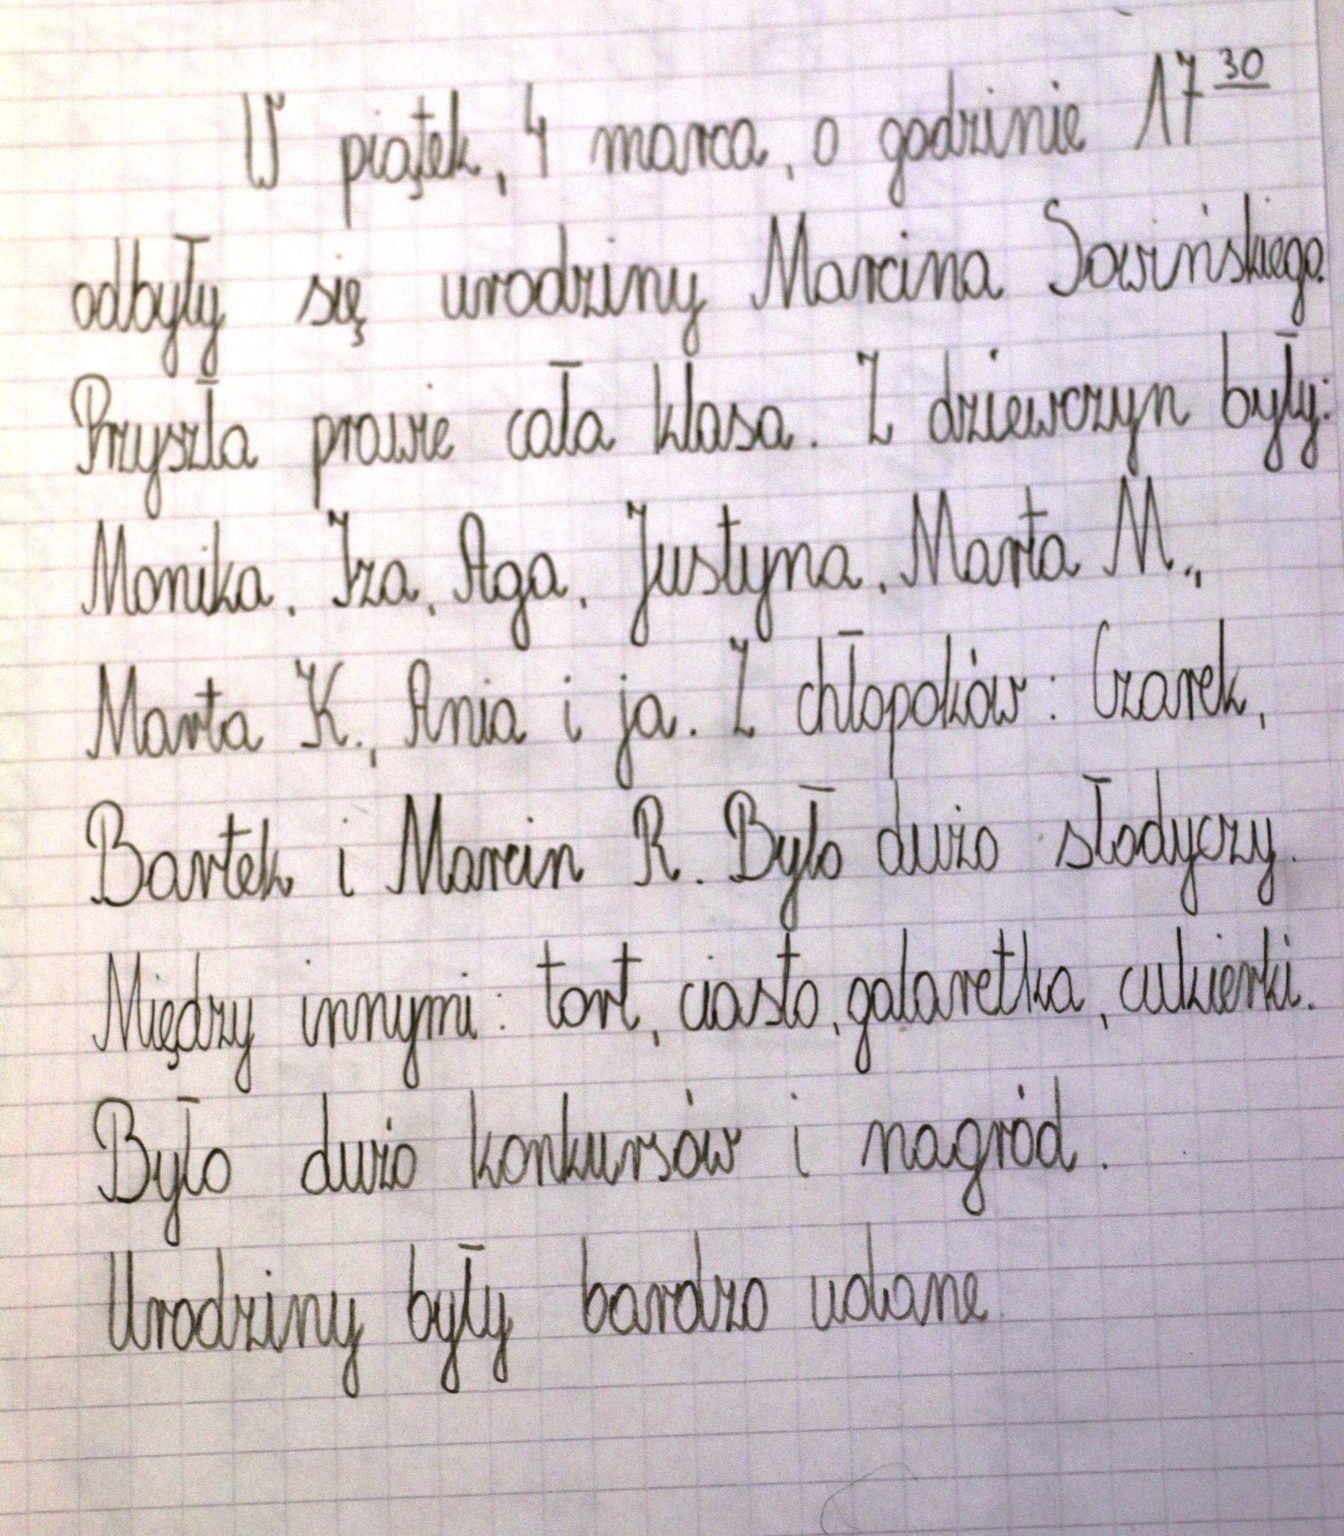 W piątek, 4 marca, o godzinie 17³⁰
odbyły się urodziny Marcina Sowińskiego.
Przyszła prawie cała klasa. Z dziewczyn były:
Monika, Iza, Aga, Justyna, Marta M.,
Marta K., Ania i ja. Z chłopaków: Czarek,
Bartek i Marcin R. Było dużo słodyczy.
Między innymi: tort, ciasto, galaretka, cukierki.
Było dużo konkursów i nagród.
Urodziny były bardzo udane